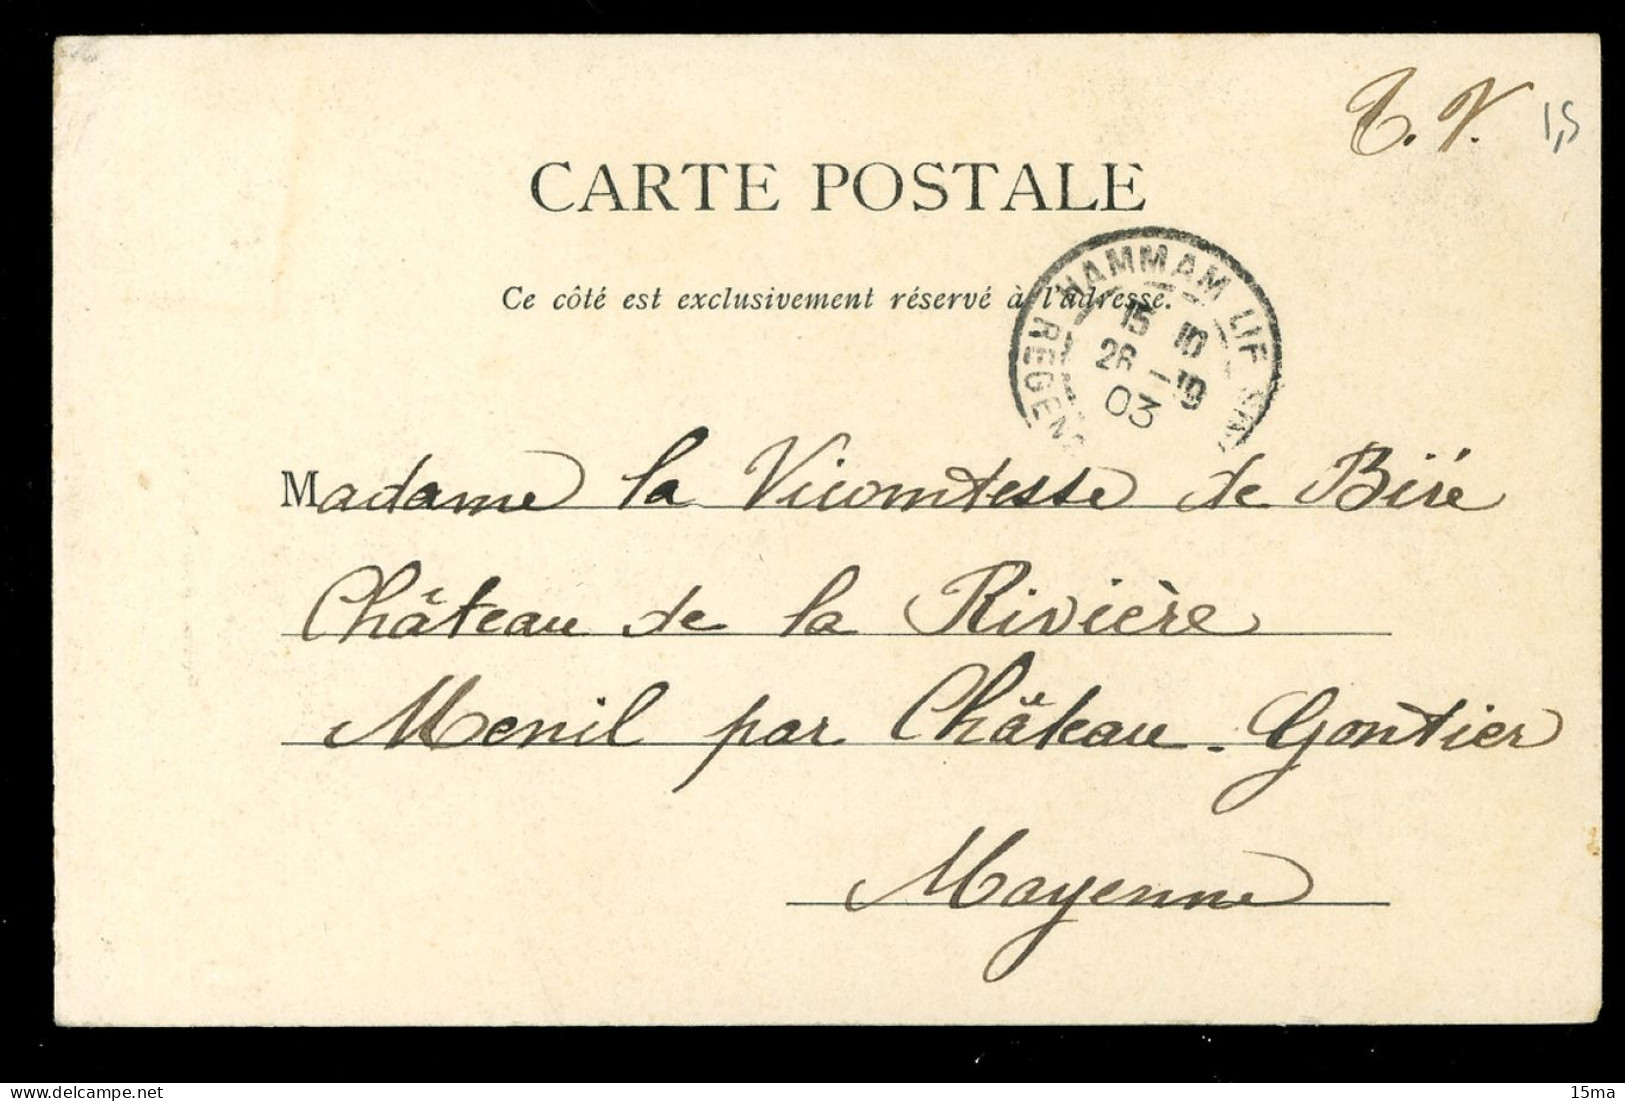 T.V. 1,5
CARTE POSTALE
Ce côté est exclusivement réservé à l'adresse.
HAMMAM LIF
REGEN
15 10
26 -10
03
Madame la Vicomtesse de Biré
Château de la Rivière
Menil par Château-Gontier
Mayenne
15ma